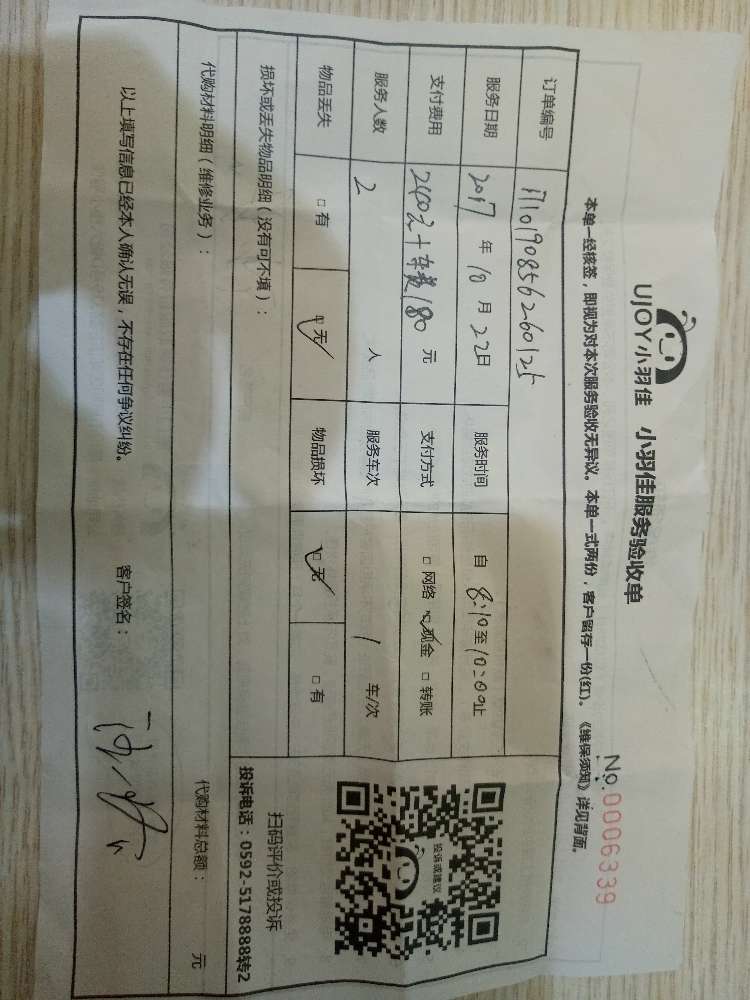 UJOY小羽佳 小羽佳服务验收单
No.0006339
本单一经核签，即视为对本次服务验收无异议。本单一式两份，客户留存一份(红)。《维保须知》详见背面。
订单编号 1710190856260125
服务日期 2017 年 10 月 22 日 服务时间 自 8:10 至 10:00 止
支付费用 2400元+车费180 元 支付方式 □ 网络 ☑ 现金 □ 转账
服务人数 2 人 服务车次 1 车/次
物品丢失 □ 有 ☑ 无 物品损坏 ☑ 无 □ 有
损坏或丢失物品明细（没有可不填）：
代购材料明细（维修业务）： 代购材料总额： 元
以上填写信息已经本人确认无误，不存在任何争议纠纷。 客户签名：
投诉或建议
扫码评价或投诉
投诉电话：0592-5178888转2